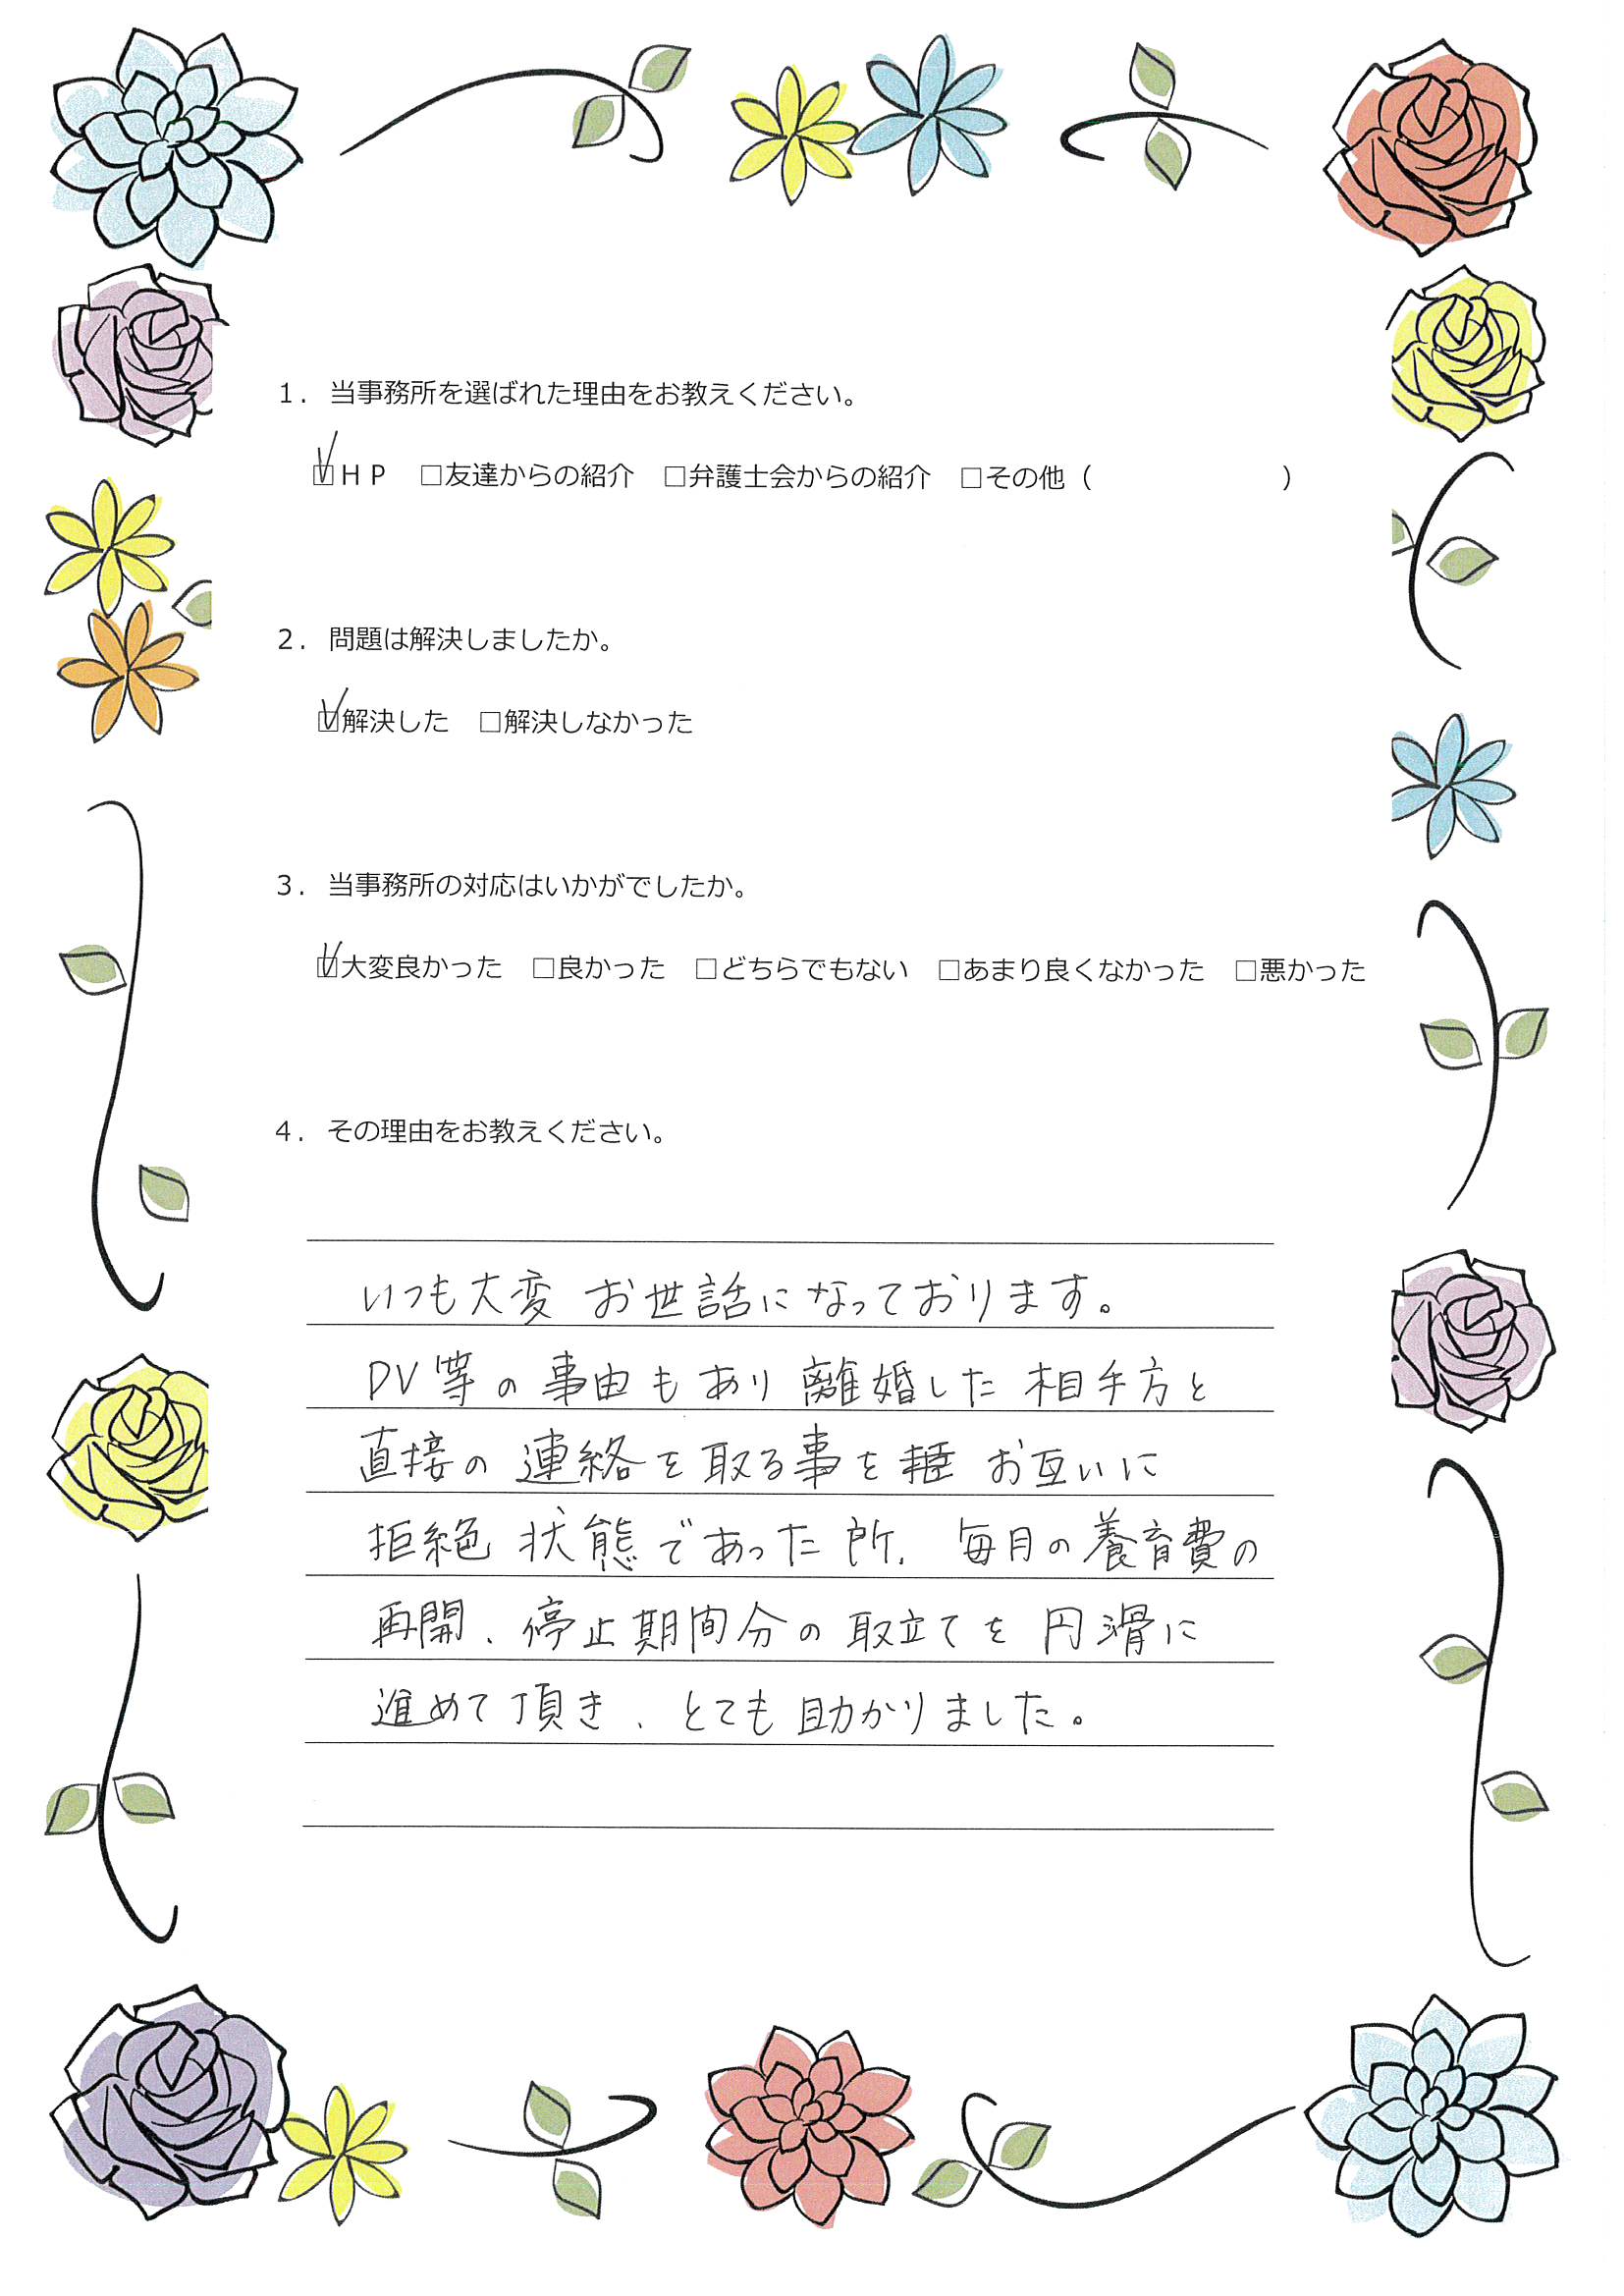 1．当事務所を選ばれた理由をお教えください。
☑ＨＰ　□友達からの紹介　□弁護士会からの紹介　□その他（　　　　　　　）
2．問題は解決しましたか。
☑解決した　□解決しなかった
3．当事務所の対応はいかがでしたか。
☑大変良かった　□良かった　□どちらでもない　□あまり良くなかった　□悪かった
4．その理由をお教えください。
いつも大変 お世話になっております。
DV等の事由もあり離婚した相手方と
直接の連絡を取る事を お互いに
拒絶状態であった所、毎月の養育費の
再開、停止期間分の取立てを円滑に
進めて頂き、とても助かりました。